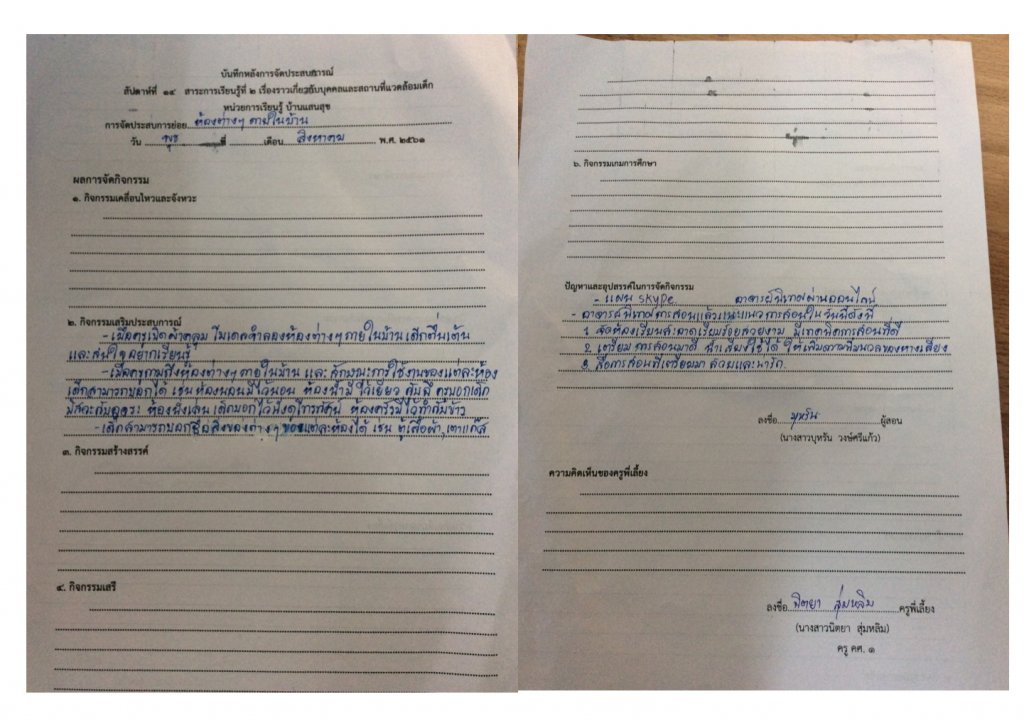 บันทึกหลังการจัดประสบการณ์
สัปดาห์ที่ ๑๔ สาระการเรียนรู้ที่ ๒ เรื่องราวเกี่ยวกับบุคคลและสถานที่แวดล้อมเด็ก
หน่วยการเรียนรู้ บ้านแสนสุข
การจัดประสบการย่อย ห้องต่างๆ ภายในบ้าน
วัน พุธ ที่ เดือน สิงหาคม พ.ศ. ๒๕๖๑
ผลการจัดกิจกรรม
๑. กิจกรรมเคลื่อนไหวและจังหวะ
๒. กิจกรรมเสริมประสบการณ์
- เมื่อครูเปิดผ้าคลุม โมเดลจำลองห้องต่างๆ ภายในบ้าน เด็กตื่นเต้น
และสนใจอยากเรียนรู้
- เมื่อครูถามถึงห้องต่างๆ ภายในบ้าน และลักษณะการใช้งานของแต่ละห้อง
เด็กสามารถบอกได้ เช่น ห้องนอนมีไว้นอน ห้องน้ำมีไว้เยี่ยว กับขี้ ครูบอกเด็ก
ปัสสาวะกับอุจจาระ ห้องนั่งเล่น เด็กบอกไว้นั่งดูโทรทัศน์ ห้องครัวมีไว้ทำกับข้าว
- เด็กสามารถบอกชื่อสิ่งของต่างๆ ของแต่ละห้องได้ เช่น ตู้เสื้อผ้า, เตาแก๊ส
๓. กิจกรรมสร้างสรรค์
๔. กิจกรรมเสรี
๖. กิจกรรมเกมการศึกษา
ปัญหาและอุปสรรคในการจัดกิจกรรม
- แผน skype อาจารย์นิเทศผ่านออนไลน์
- อาจารย์นิเทศการสอนแล้วแนะแนวการสอนในวันนี้ดังนี้
1. จัดห้องเรียนสะอาดเรียบร้อยสวยงาม มีเทคนิคการสอนที่ดี
2. เตรียมการสอนมาดี น้ำเสียงใช้ได้ ให้เพิ่มความนิ่มนวลของหางเสียง
3. สื่อการสอนที่เตรียมมา สวยและน่ารัก
ลงชื่อ บุหรัน ผู้สอน
(นางสาวบุหรัน วงษ์ศรีแก้ว)
ความคิดเห็นของครูพี่เลี้ยง
ลงชื่อ นิตยา สุ่มหลิม ครูพี่เลี้ยง
(นางสาวนิตยา สุ่มหลิม)
ครู คศ. ๑